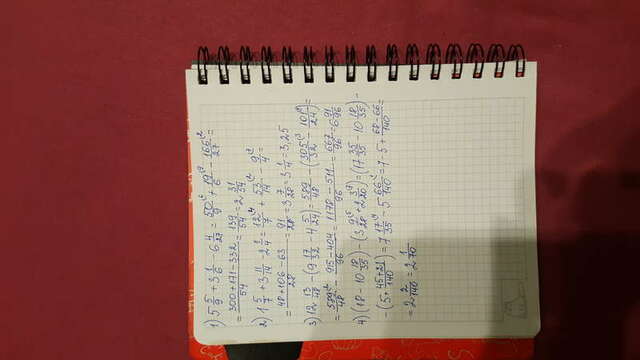 1) 5 5/9 + 3 1/6 - 6 4/27 = 50/9 + 19/6 - 166/27 =
= (300+171-332)/54 = 139/54 = 2 31/54
2) 1 5/7 + 3 11/14 - 2 1/4 = 12/7 + 53/14 - 9/4 =
= (48+106-63)/28 = 91/28 = 3 7/28 = 3 1/4 = 3,25
3) 12 13/48 - (9 17/32 - 4 5/24) = 589/48 - (305/32 - 101/24) =
= 589/48 - (915-404)/96 = (1178-511)/96 = 667/96 = 6 91/96
4) (18 - 10 18/35) - (3 9/28 + 2 3/20) = (17 35/35 - 10 18/35) -
- (5 + (45+21)/140) = 7 17/35 - 5 66/140 = 7 - 5 + (68-66)/140 =
= 2 2/140 = 2 1/70